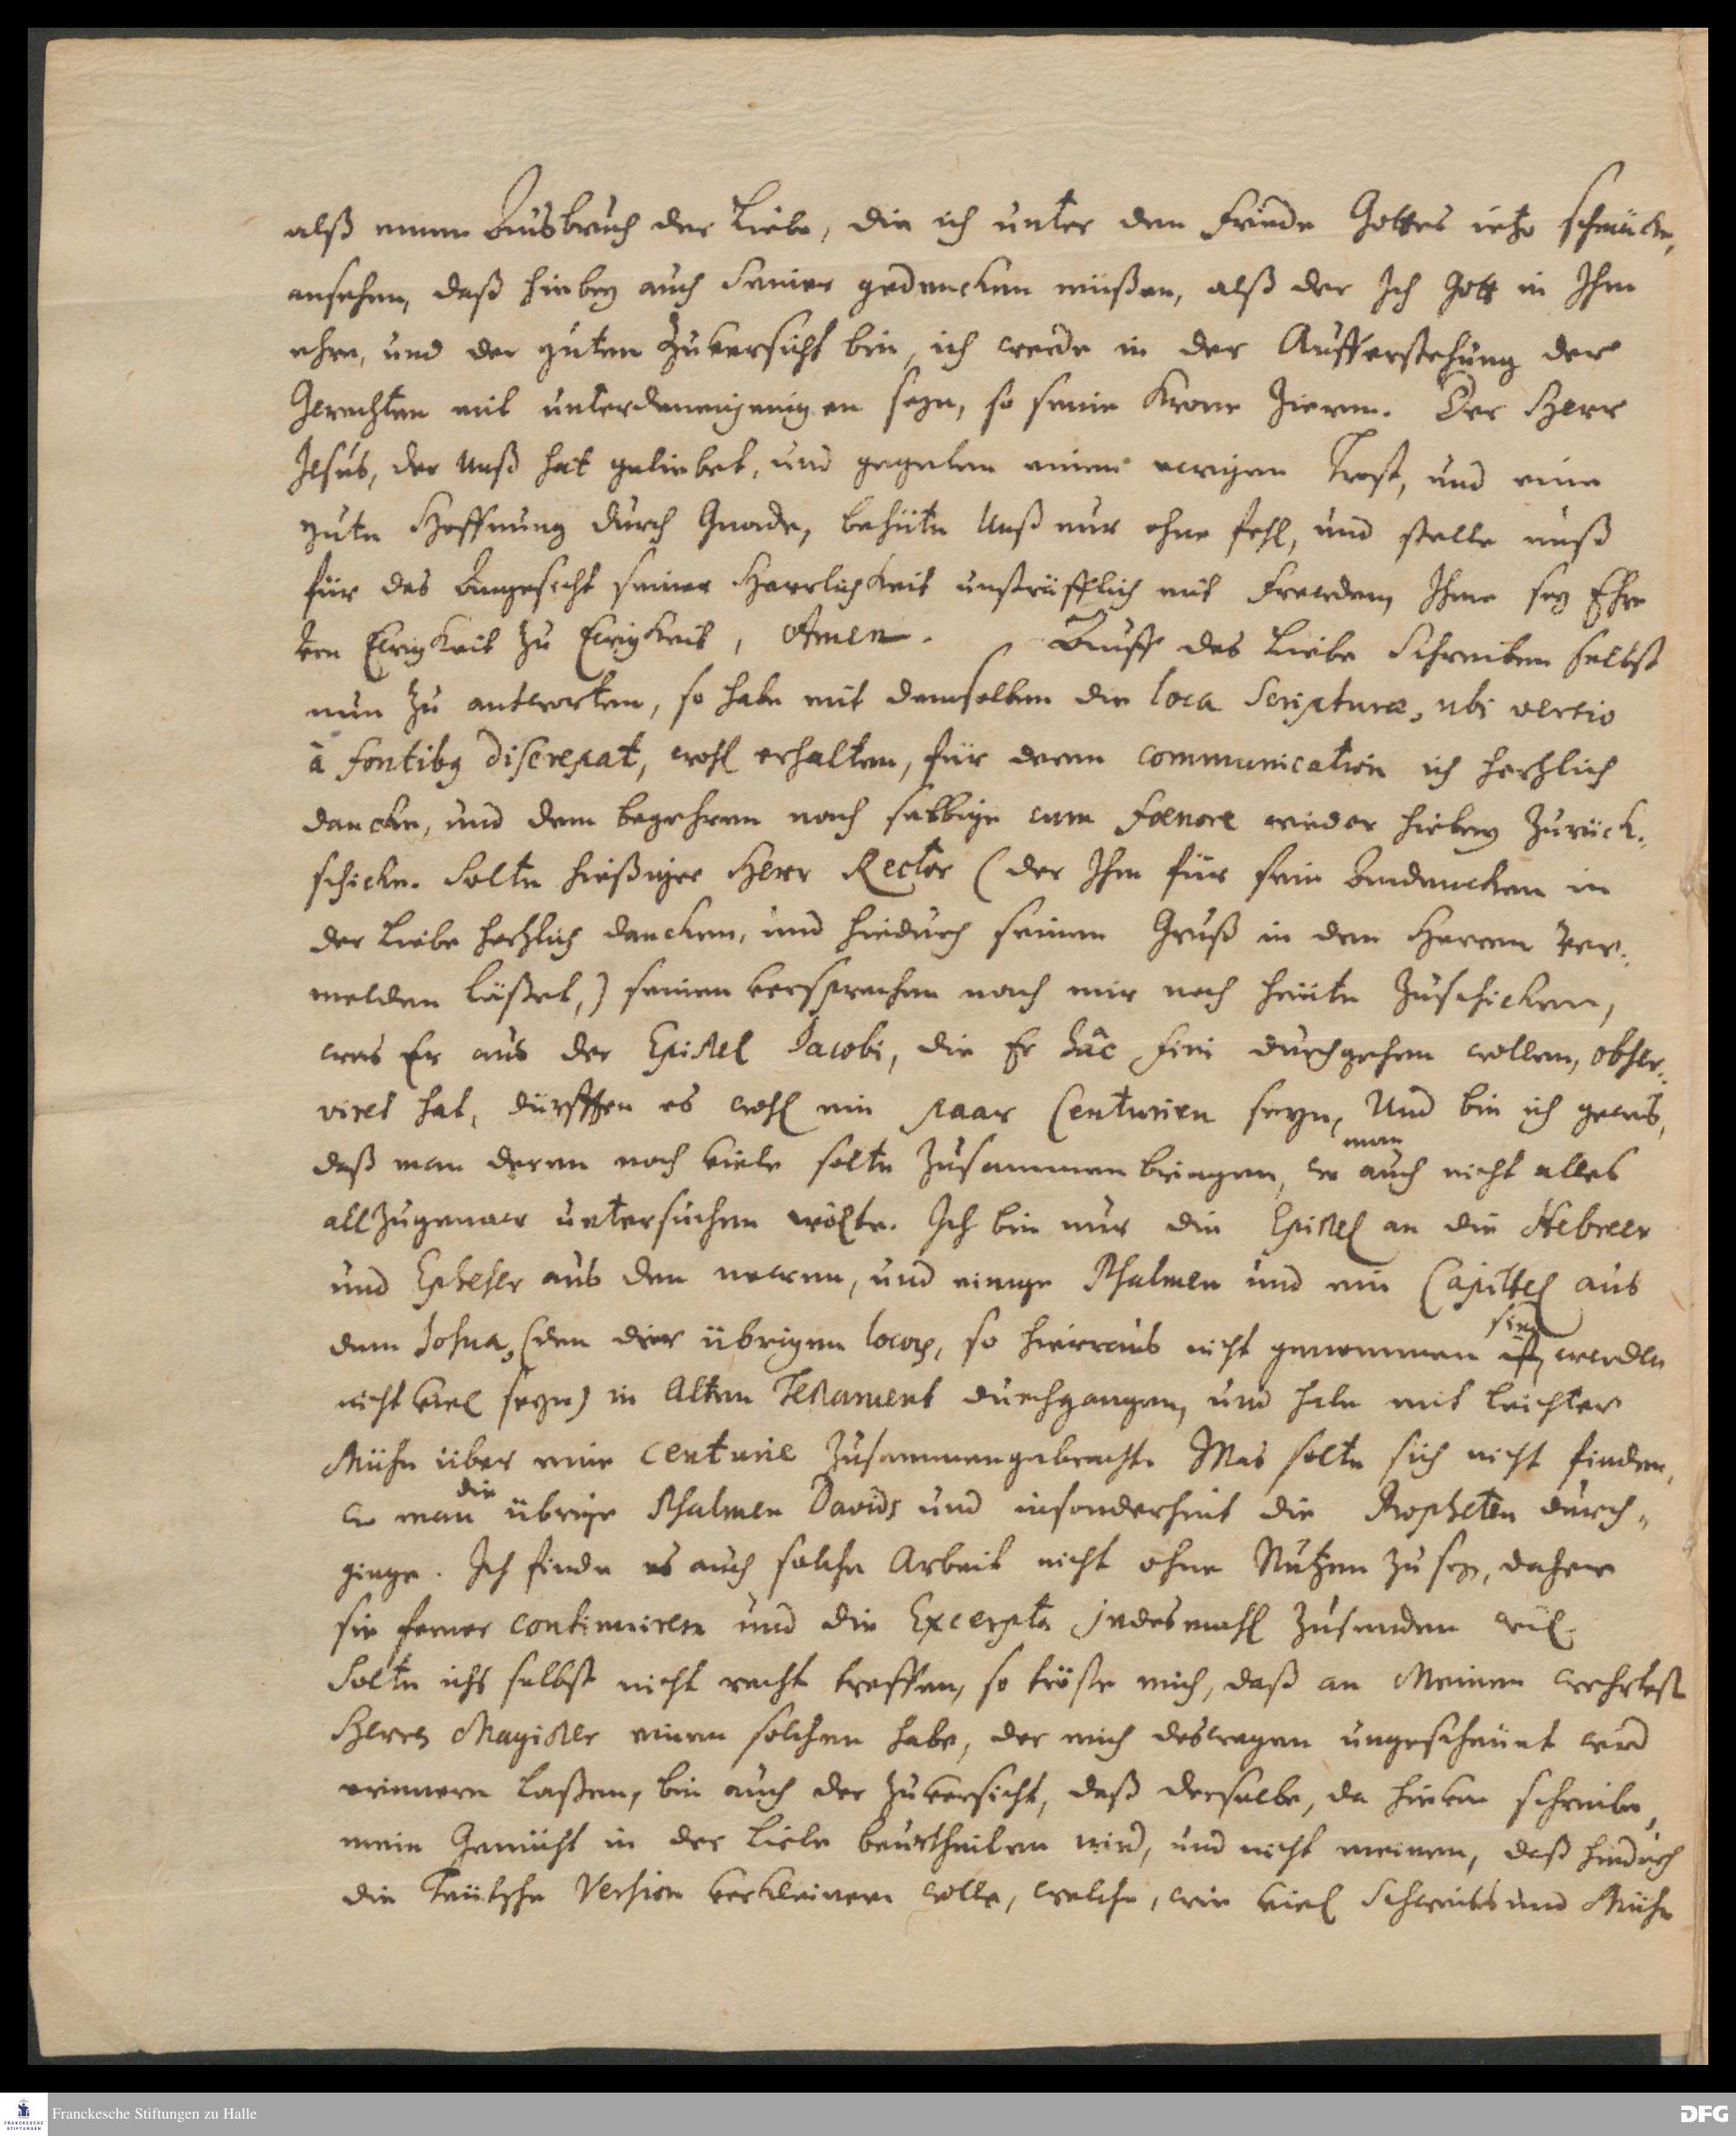 alß einen Ausbruch der Liebe, die ich unter dem Friede Gottes ietzo schmäcke,
ansehen, daß hiebey auch Seiner gedencken müßen, alß der Ich Gott in Ihm
ehre, und der guten Zuversicht bin, ich werde in der Aufferstehung der
Gerechten mit unter denenjenigen seyn, so seine Krone zieren. Der Herr
Jesus, der Unß hat geliebet, und gegeben einen ewigen Trost, und eine
gute Hoffnung durch Gnade, behüte Unß nur ohne fehl, und stelle unß
für das Angesicht seiner Herrlichkeit unsträfflich mit Frewden, Ihme sey Ehre
von Ewigkeit zu Ewigkeit, Amen. Auff das Liebe Schreiben selbst
nun zu antworten, so habe mit demselben die loca Scripturæ, ubi versio
à fontibq discrepat, wohl erhalten, für deren communication ich hertzlich
dancke, und dem begehren nach selbige cum foenore wieder hiebey zurück-
schicke. Solte hießiger Herr Rector (der Ihm für sein Andencken in
der Liebe hertzlich dancken, und hiedurch seinen Gruß in dem Herren ver-
melden läßet,) seinen versprechen nach mir noch heüte zuschicken,
was Er aus der Epistel Jacobi, die Er hâc fini durchgehen wollen, obser-
viret hat, dürfften es wohl ein paar Centurien seyn, Und bin ich gewis,
daß man deren noch viele solte zusammen bringen, wo man auch nicht alles
allzugenaw untersuchen wölte. Ich bin nur die Epistel an die Hebreer
und Epheser aus den newen, und einige Psalmen und ein Capittel aus
dem Josua, (den der übrigen locorum, so hieraus nicht genommen ist sind, werden
nicht viel seyn) in Alten Testament durchgangen, und habe mit leichter
Mühe über eine centurie zusammengebracht. Was solte sich nicht finden,
wo man die übrige Psalmen Davids und insonderheit die Propheten durch-
ginge. Ich finde es auch solche Arbeit nicht ohne Nutzen zu seyn, daher
sie ferner continuiren und die Excerpta jedesmahl zusenden wil.
Solte ichs selbst nicht recht treffen, so tröste mich, daß an Meinen wehrtest
Herrn Magister einen solchen habe, der mich deswegen ungescheüet wird
erinnern laßen, bin auch der Zuversicht, daß derselbe, da hievon schreibe,
mein Gemüht in der Liebe beurtheilen wird, und nicht meinen, daß hiedurch
die Teütsche Version verkleinern wolle, welche, wie viel Schweiß und Mühe